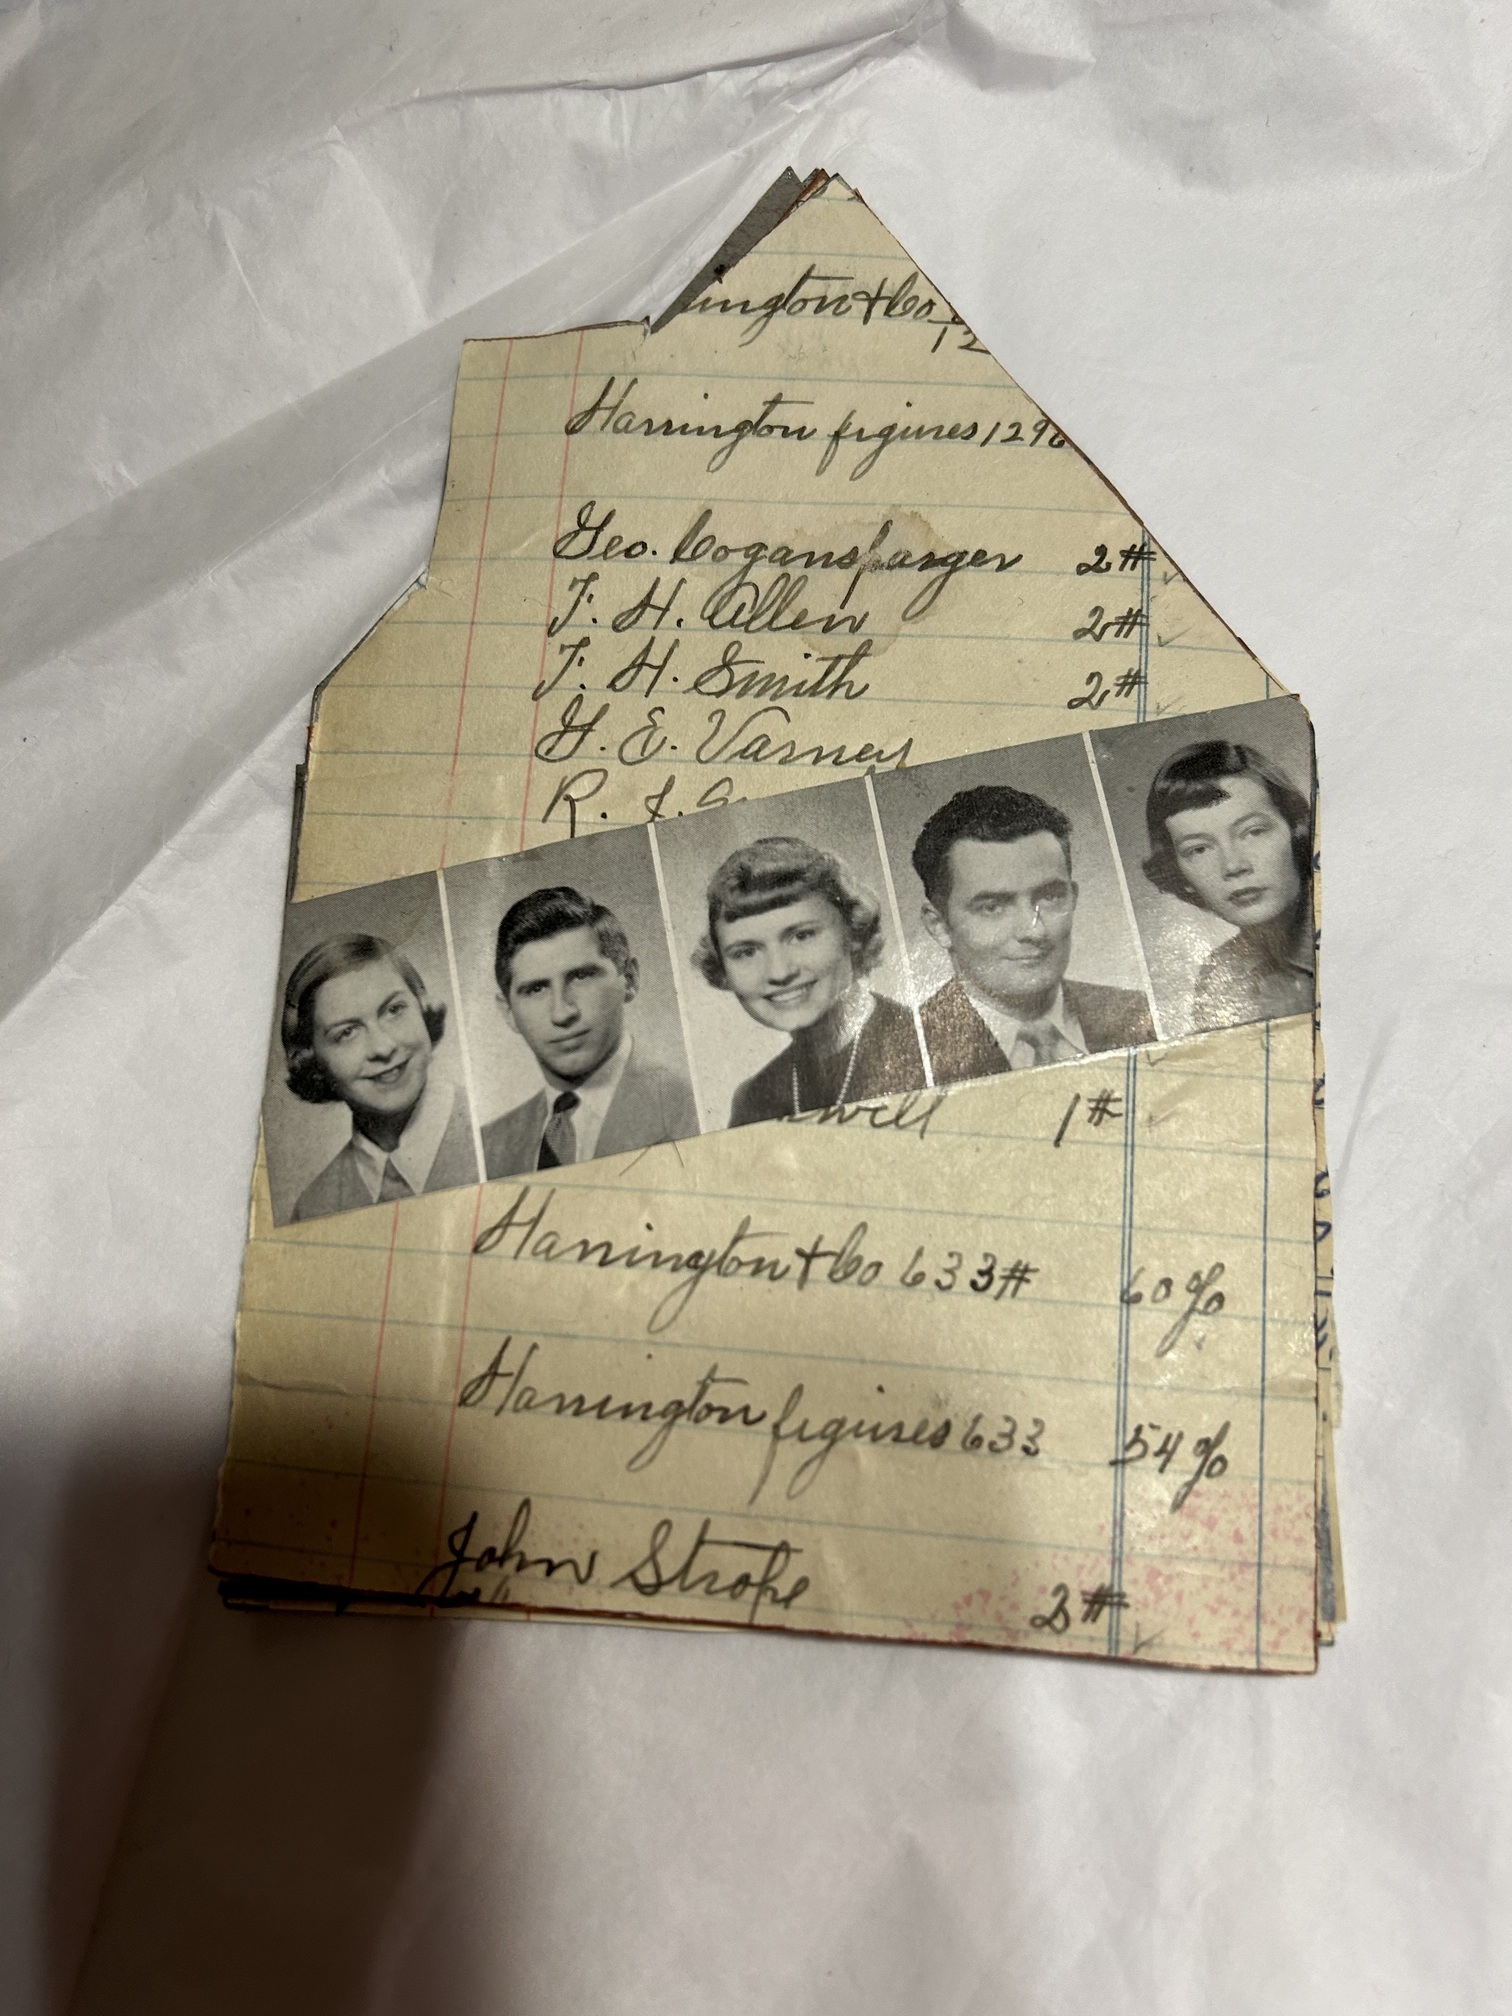 ington & Co
12
Harrington figures 1296
Geo. Cogansparger 2#
F. H. Allen 2#
F. H. Smith 2#
G. E. Varney
R. J.
well 1#
Harrington & Co 633# 60%
Harrington figures 633 54%
John Strope 2#